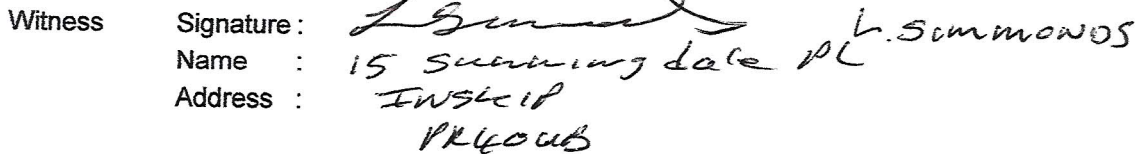 Witness Signature : L. Simmonds
Name : 15 Sunningdale PL
Address : INSKIP
PR4 0UB